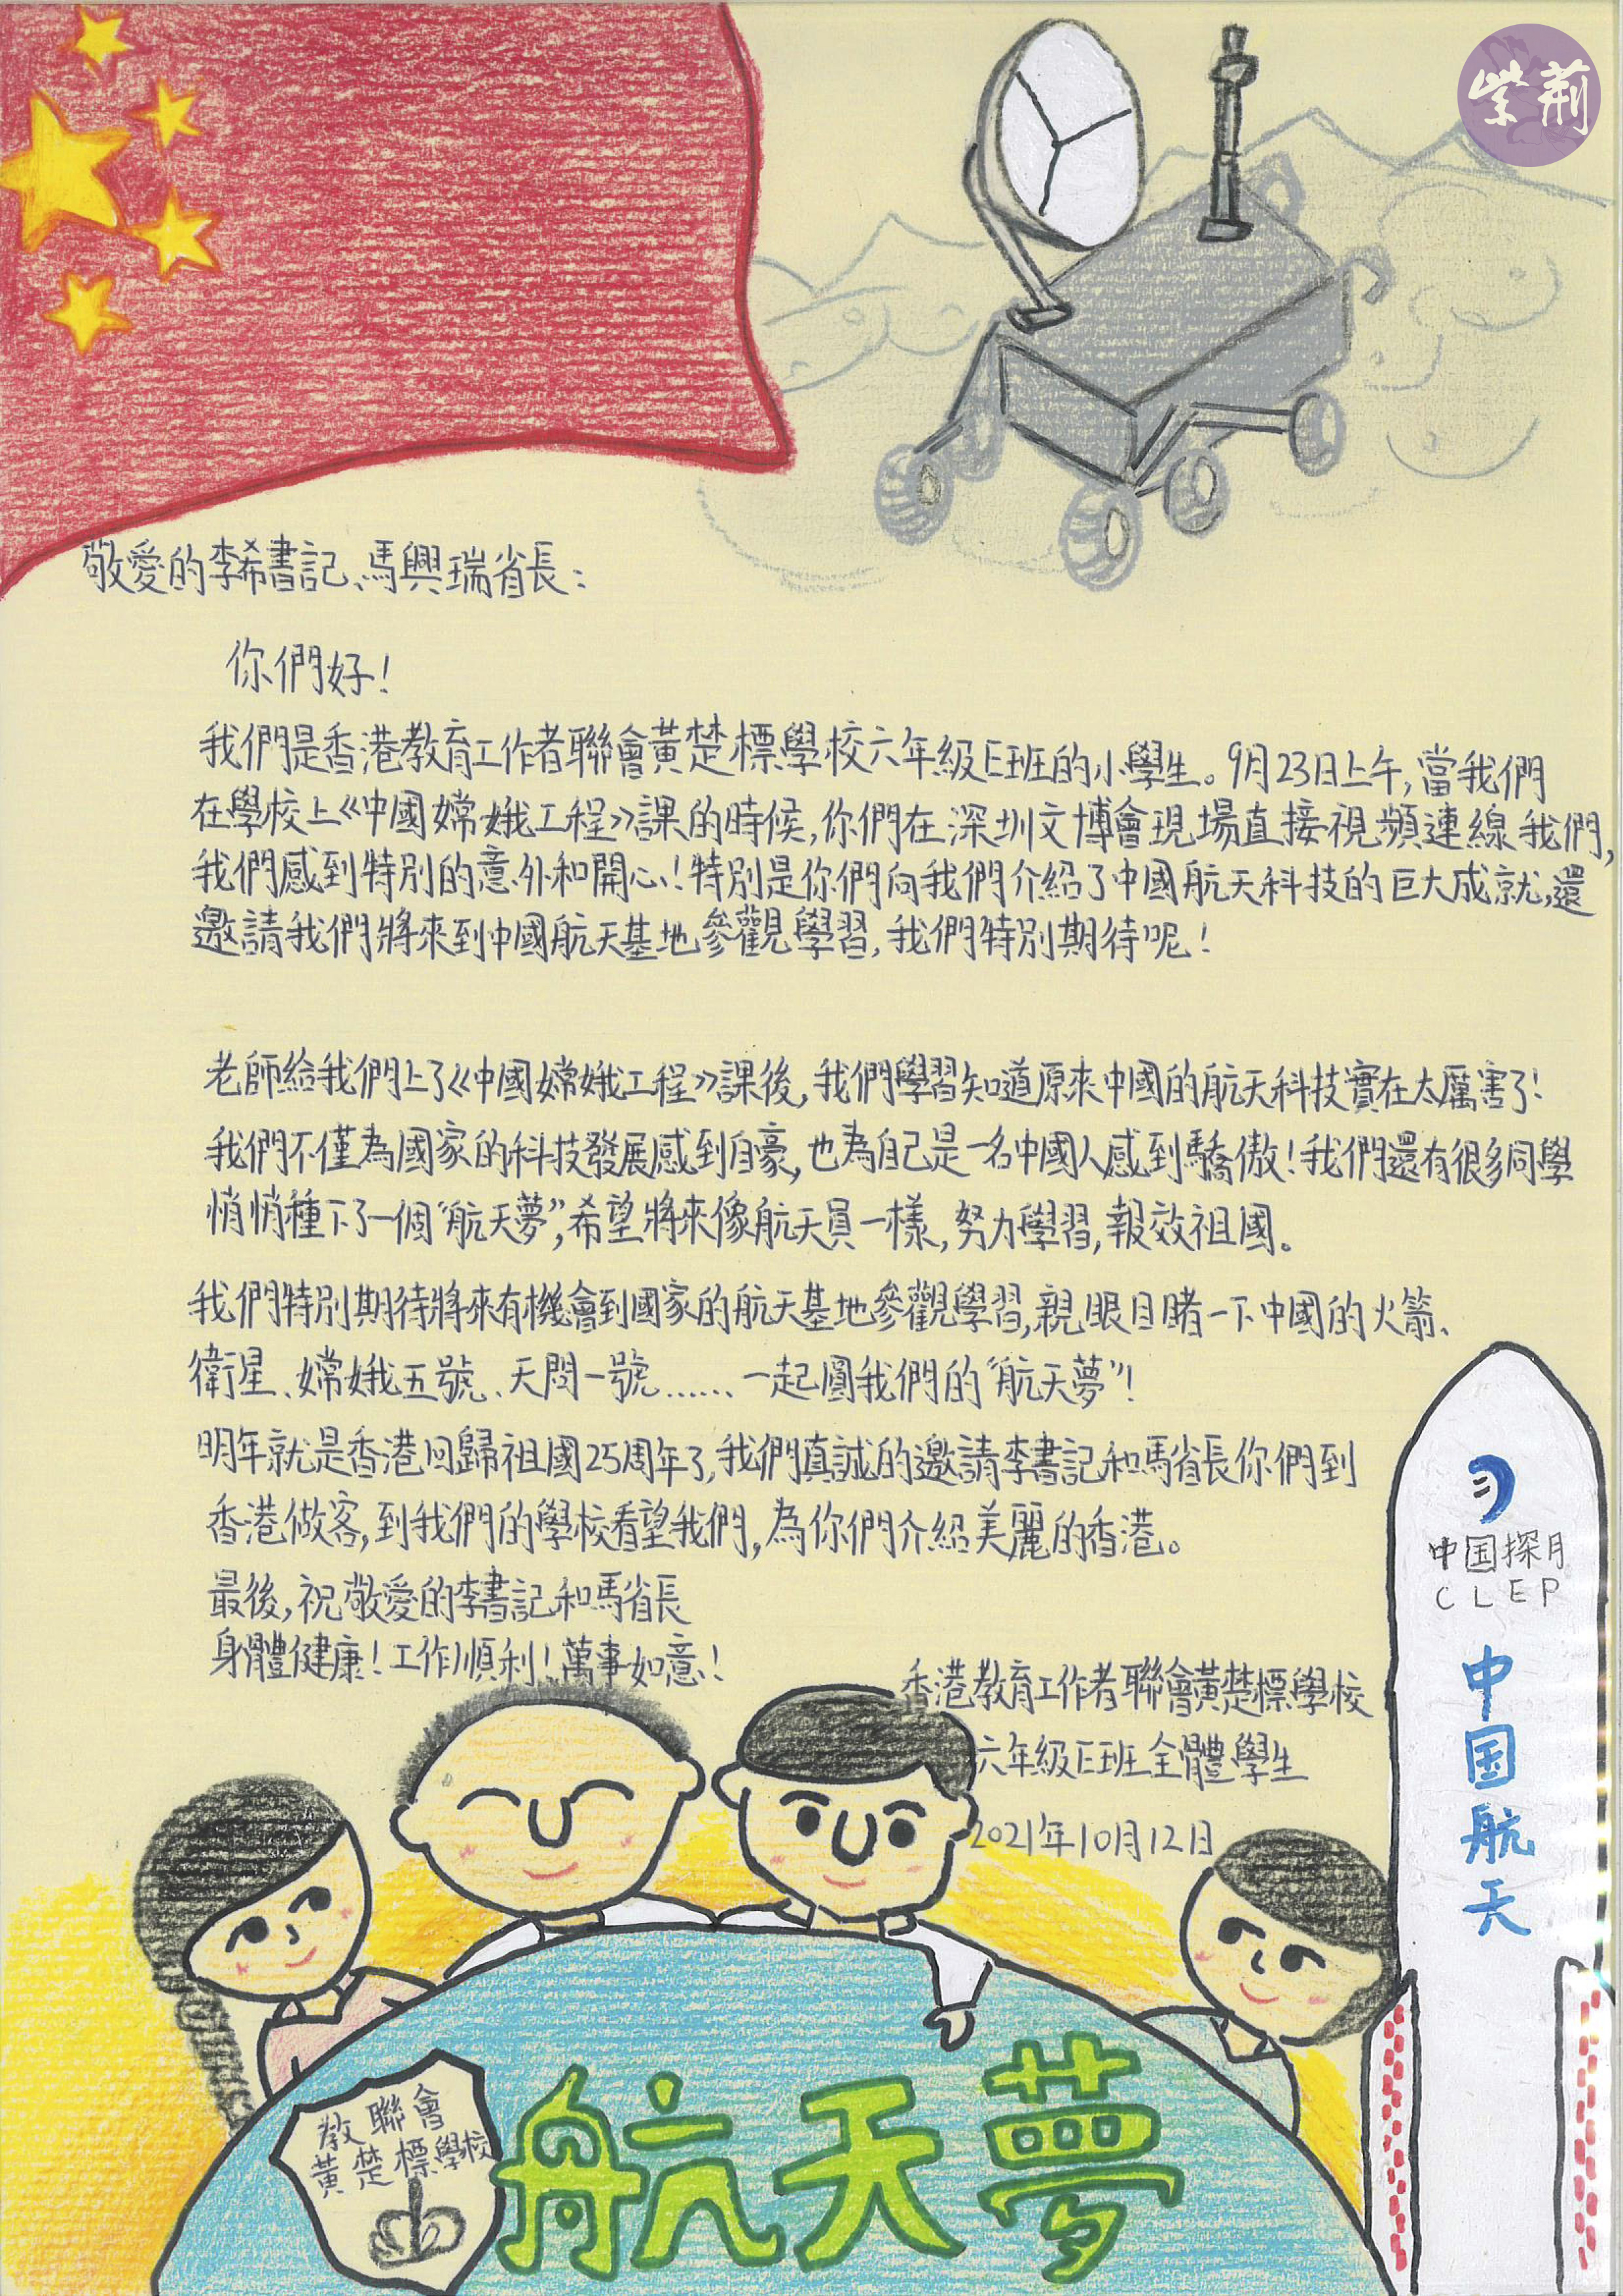 紫荊
敬愛的李希書記、馬興瑞省長：
你們好！
我們是香港教育工作者聯會黃楚標學校六年級E班的小學生。9月23日上午,當我們
在學校上《中國嫦娥工程》課的時候,你們在深圳文博會現場直接視頻連線我們,
我們感到特別的意外和開心!特別是你們向我們介紹了中國航天科技的巨大成就,還
邀請我們將來到中國航天基地參觀學習,我們特別期待呢!
老師給我們上了《中國嫦娥工程》課後,我們學習知道原來中國的航天科技實在太厲害了!
我們不僅為國家的科技發展感到自豪,也為自己是一名中國人感到驕傲!我們還有很多同學
悄悄種下了一個“航天夢”,希望將來像航天員一樣,努力學習,報效祖國。
我們特別期待將來有機會到國家的航天基地參觀學習,親眼目睹一下中國的火箭、
衛星、嫦娥五號、天問一號……、一起圓我們的“航天夢”!
明年就是香港回歸祖國25周年了,我們真誠的邀請李書記和馬省長你們到
香港做客,到我們的學校看望我們,為你們介紹美麗的香港。
最後,祝敬愛的李書記和馬省長
身體健康!工作順利!萬事如意!
香港教育工作者聯會黃楚標學校
六年級E班全體學生
2021年10月12日
中国探月
CLEP
中国航天
教聯會
黃楚標學校
航天夢